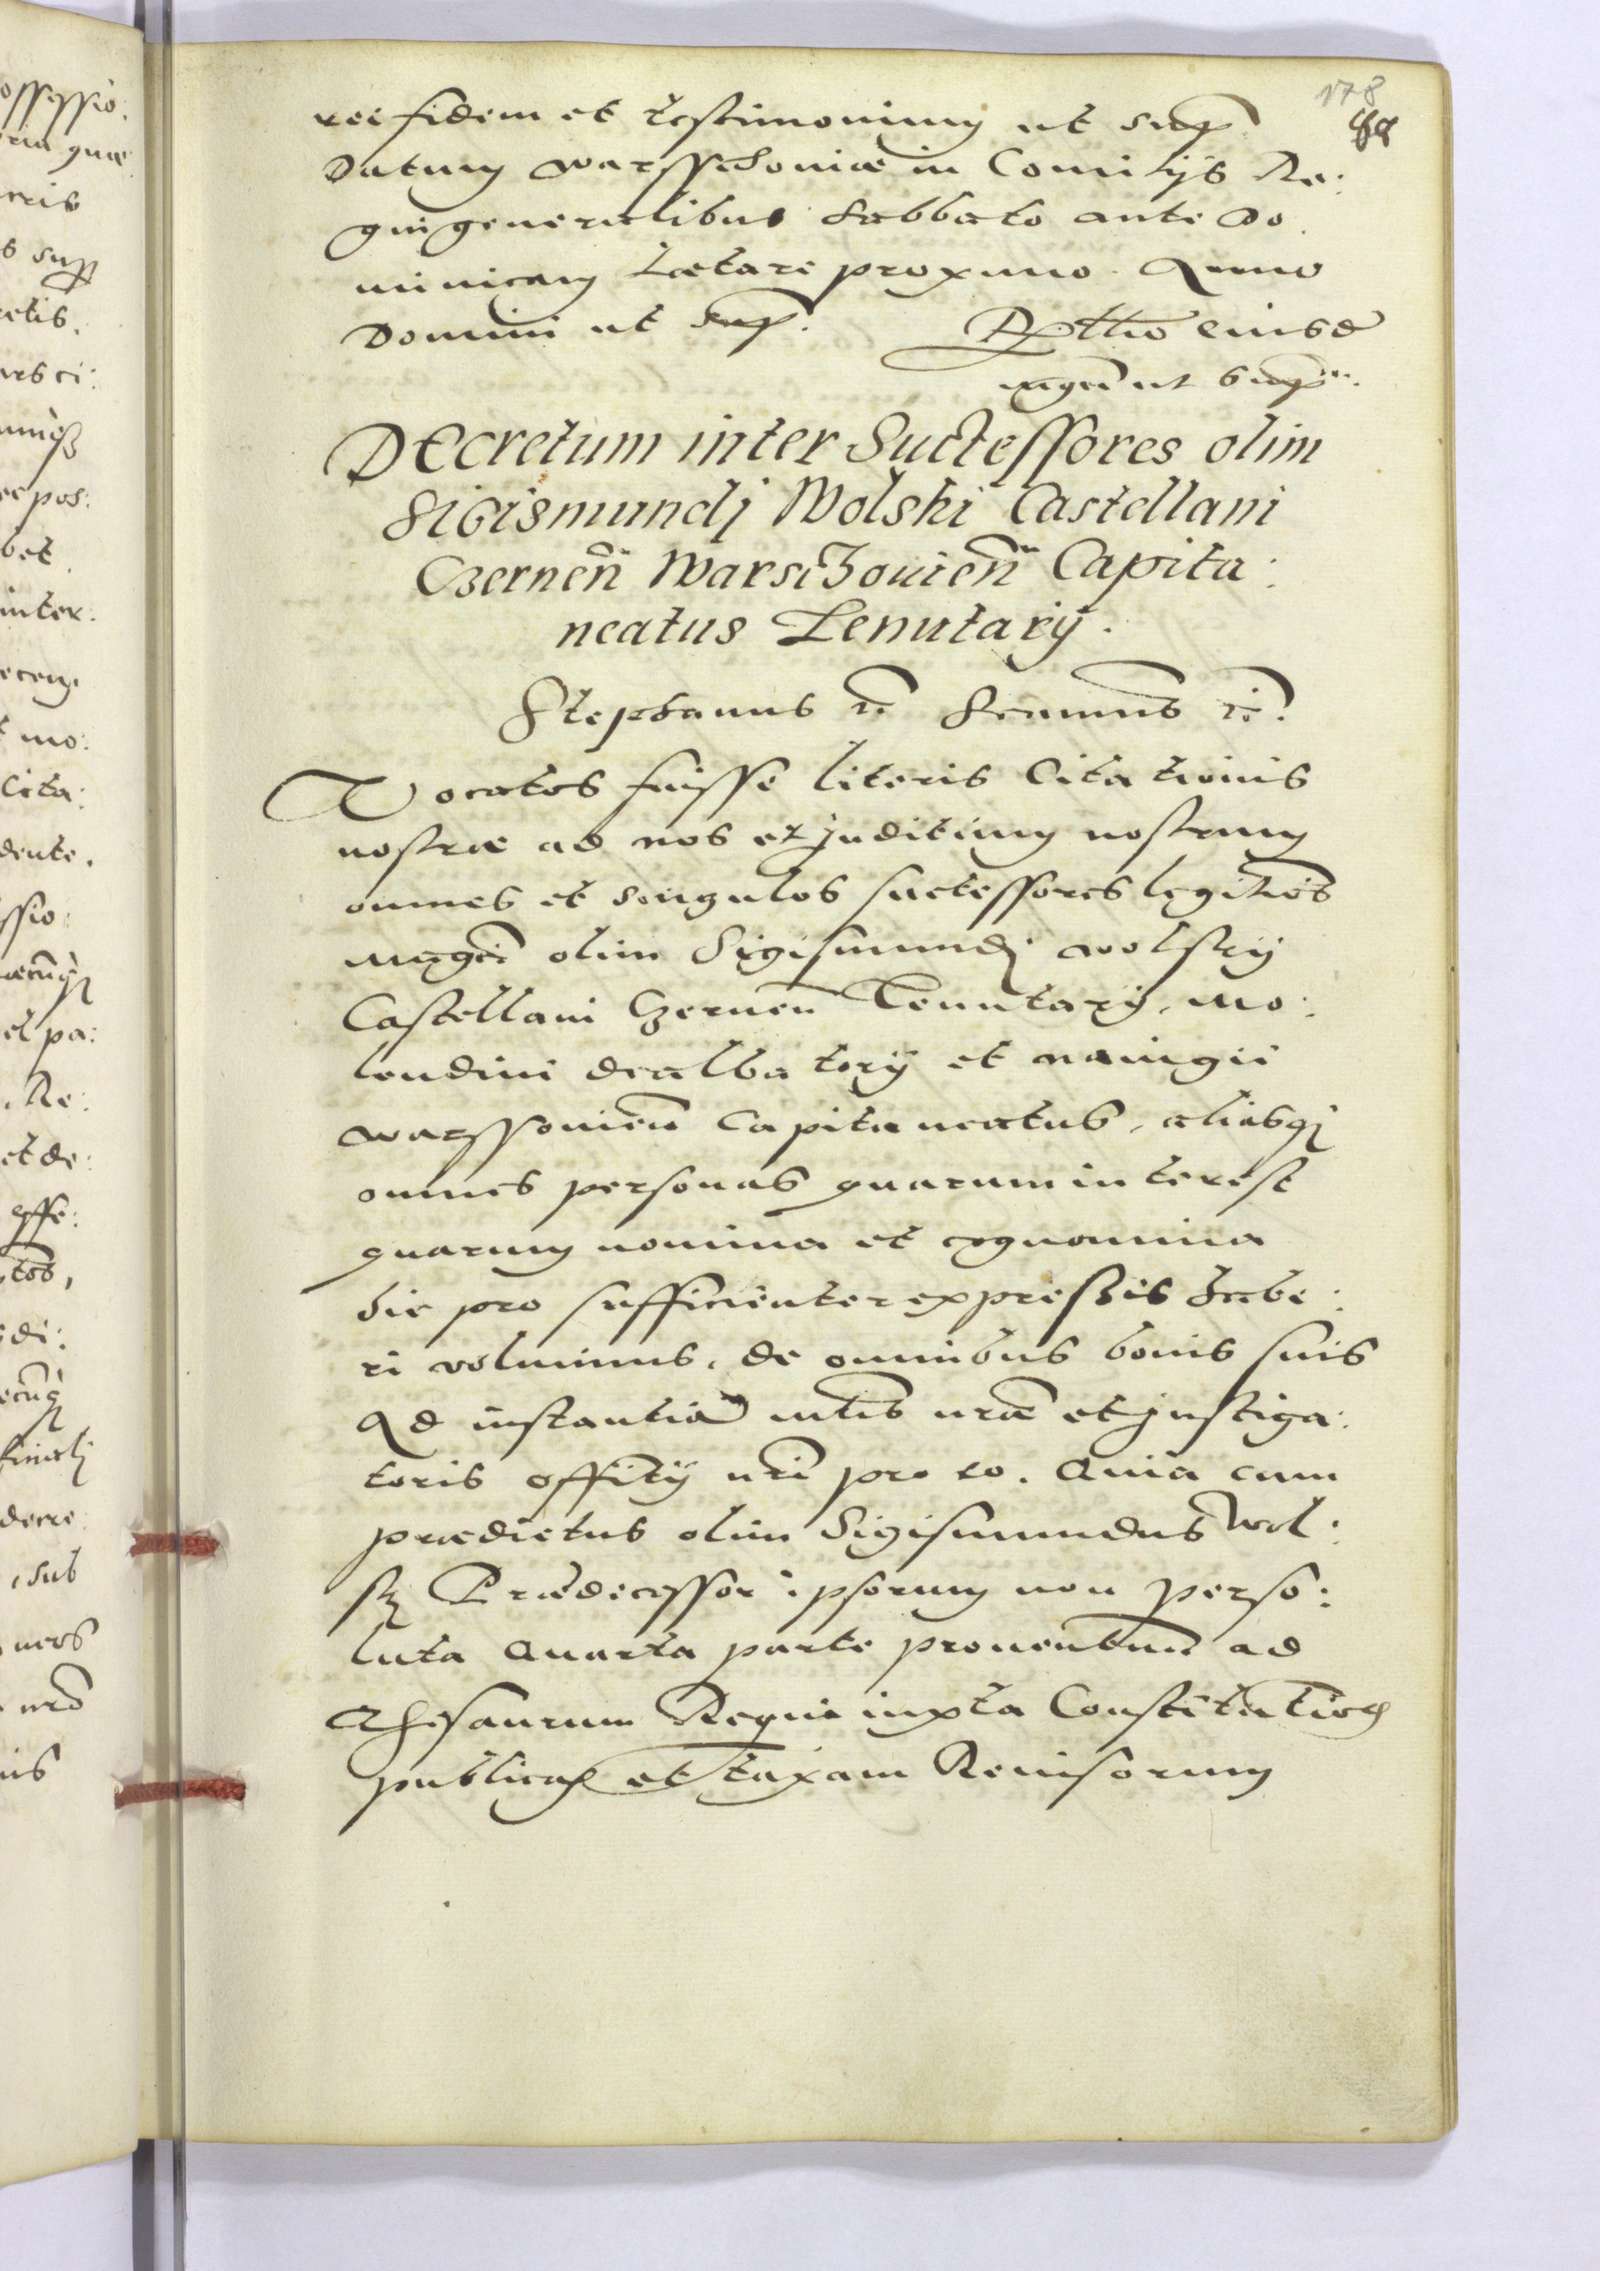 178
rei fidem et testimonium ut sup.
Datum Warsschoviæ in Comitijs Re:
gni generalibus Sabbato ante Do
minicam Lætare proximo. Anno
Domini ut sup. Rtio eiusd
mgci ut sup.
DEcretum inter Suctessores olim
Sigismundj Wolski Castellani
Czerneñ Warschovieñ Capita:
neatus Tenutarij.
Stephanus rc Scimus rc.
Vocatos fuisse literis Citationis
nostræ ad nos et Juditium nostrum
omnes et singulos suctessores legitimos
mgci olim Sigismundj Wolskij
Castellani Czerneñ Tenutarij, mo:
lendini dealbatorij et navigii
Warssovieñ Capitaneatus, aliasqȝ
omnes personas quarum interest
quarum nomina et cognomina
hic pro sufficienter expressis habe:
ri volumus, de omnibus bonis suis
Ad instantiã mtis nræ et Jnstiga:
toris offitij nri pro eo. Quia cum
prædictus olim Sigismundus Wol:
skj Prædecessor ipsorum non perso:
luta Quarta parte proventuũ ad
Thesaurum Regni iuxta Constitutiones
publicas et taxam Revisorum